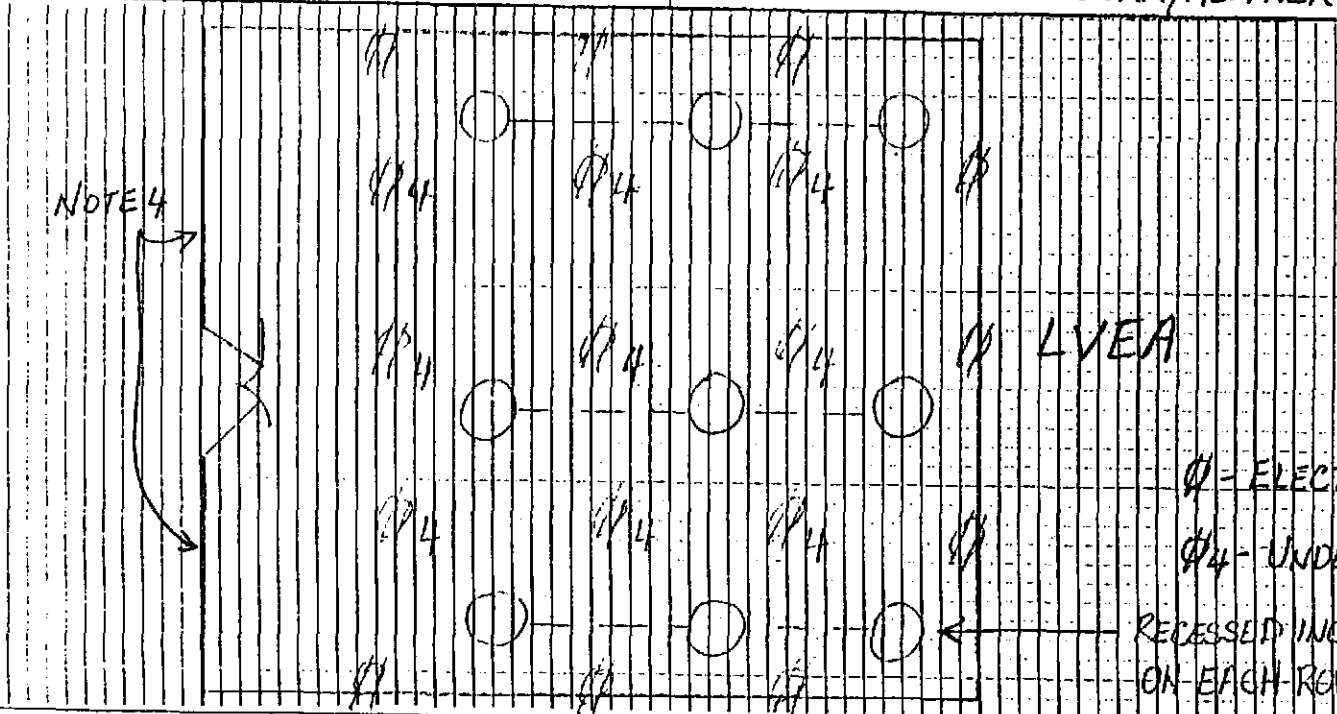 NOTE 4
4 4 4
LVEA
4 4 4
4 4 4
- ELEC
4 - UND
RECESSED INC
ON EACH ROW